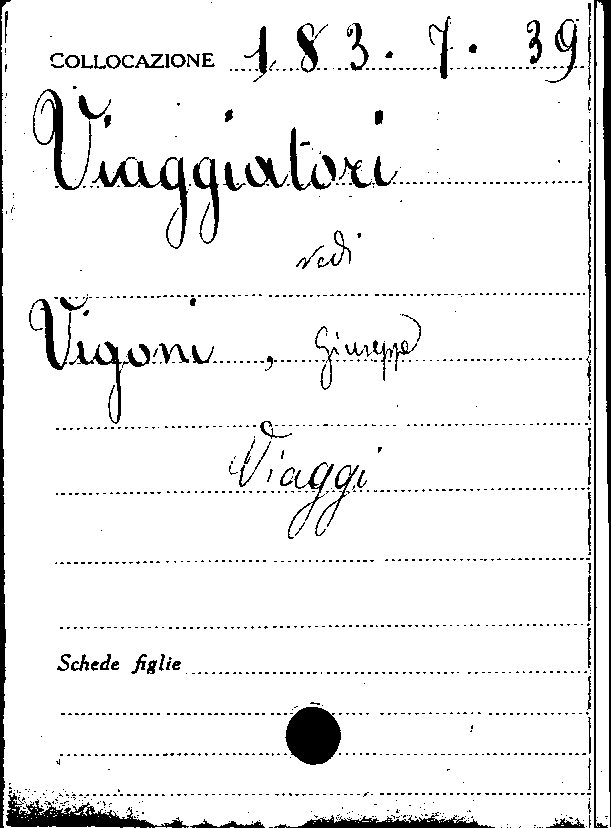 COLLOCAZIONE 183.7.39
Viaggiatori
vedi
Vigoni, Giuseppe
Viaggi
Schede figlie